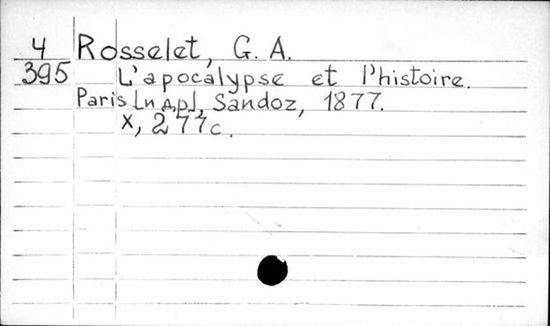 4 Rosselet, G. A.
395 L'apocalypse et l'histoire.
Paris [и др], Sandoz, 1877.
X, 277с.